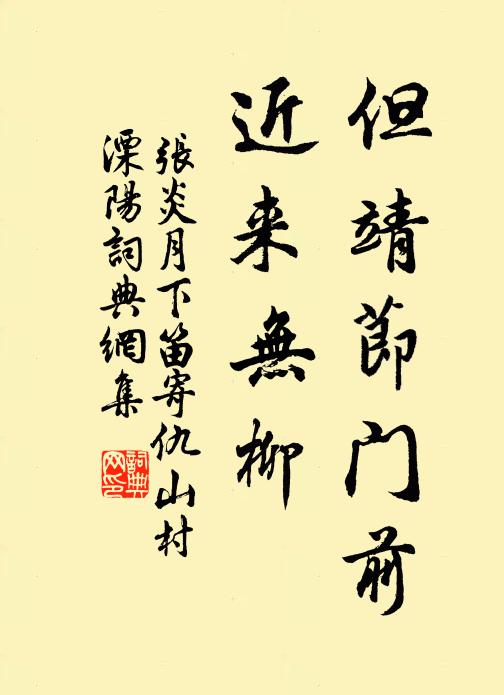 但靖節门前
近来無柳
張炎月下笛寄仇山村
溧陽詞典網集
詞典网印